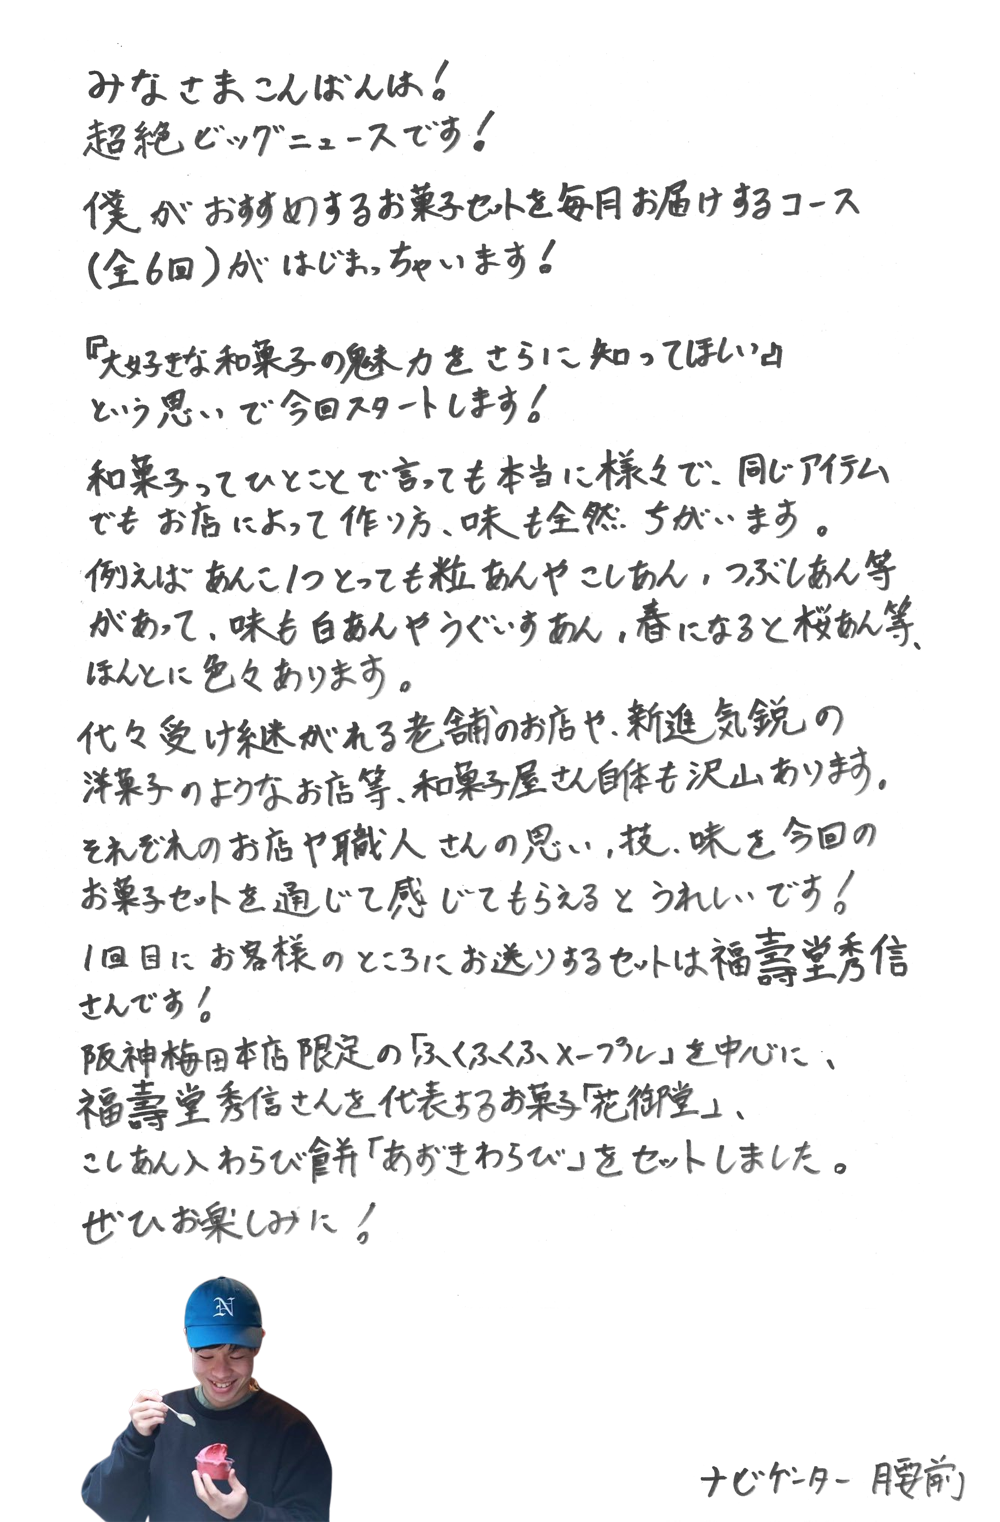 みなさまこんばんは!
超絶ビッグニュースです!
僕がおすすめするお菓子セットを毎月お届けするコース
(全6回)がはじまっちゃいます!
『大好きな和菓子の魅力をさらに知ってほしい』
という思いで今回スタートします!
和菓子ってひとことで言っても本当に様々で、同じアイテム
でもお店によって作り方、味も全然ちがいます。
例えばあんこ1つとっても粒あんやこしあん、つぶしあん等
があって、味も白あんやうぐいすあん、春になると桜あん等、
ほんとに色々あります。
代々受け継がれる老舗のお店や、新進気鋭の
洋菓子のようなお店等、和菓子屋さん自体も沢山あります。
それぞれのお店や職人さんの思い、技、味を今回の
お菓子セットを通じて感じてもらえるとうれしいです!
1回目にお客様のところにお送りするセットは福壽堂秀信
さんです!
阪神梅田本店限定の「ふくふくふメープル」を中心に、
福壽堂秀信さんを代表するお菓子「花御堂」、
こしあん入わらび餅「あおきわらび」をセットしました。
ぜひお楽しみに!
N
ナビゲーター 腰前